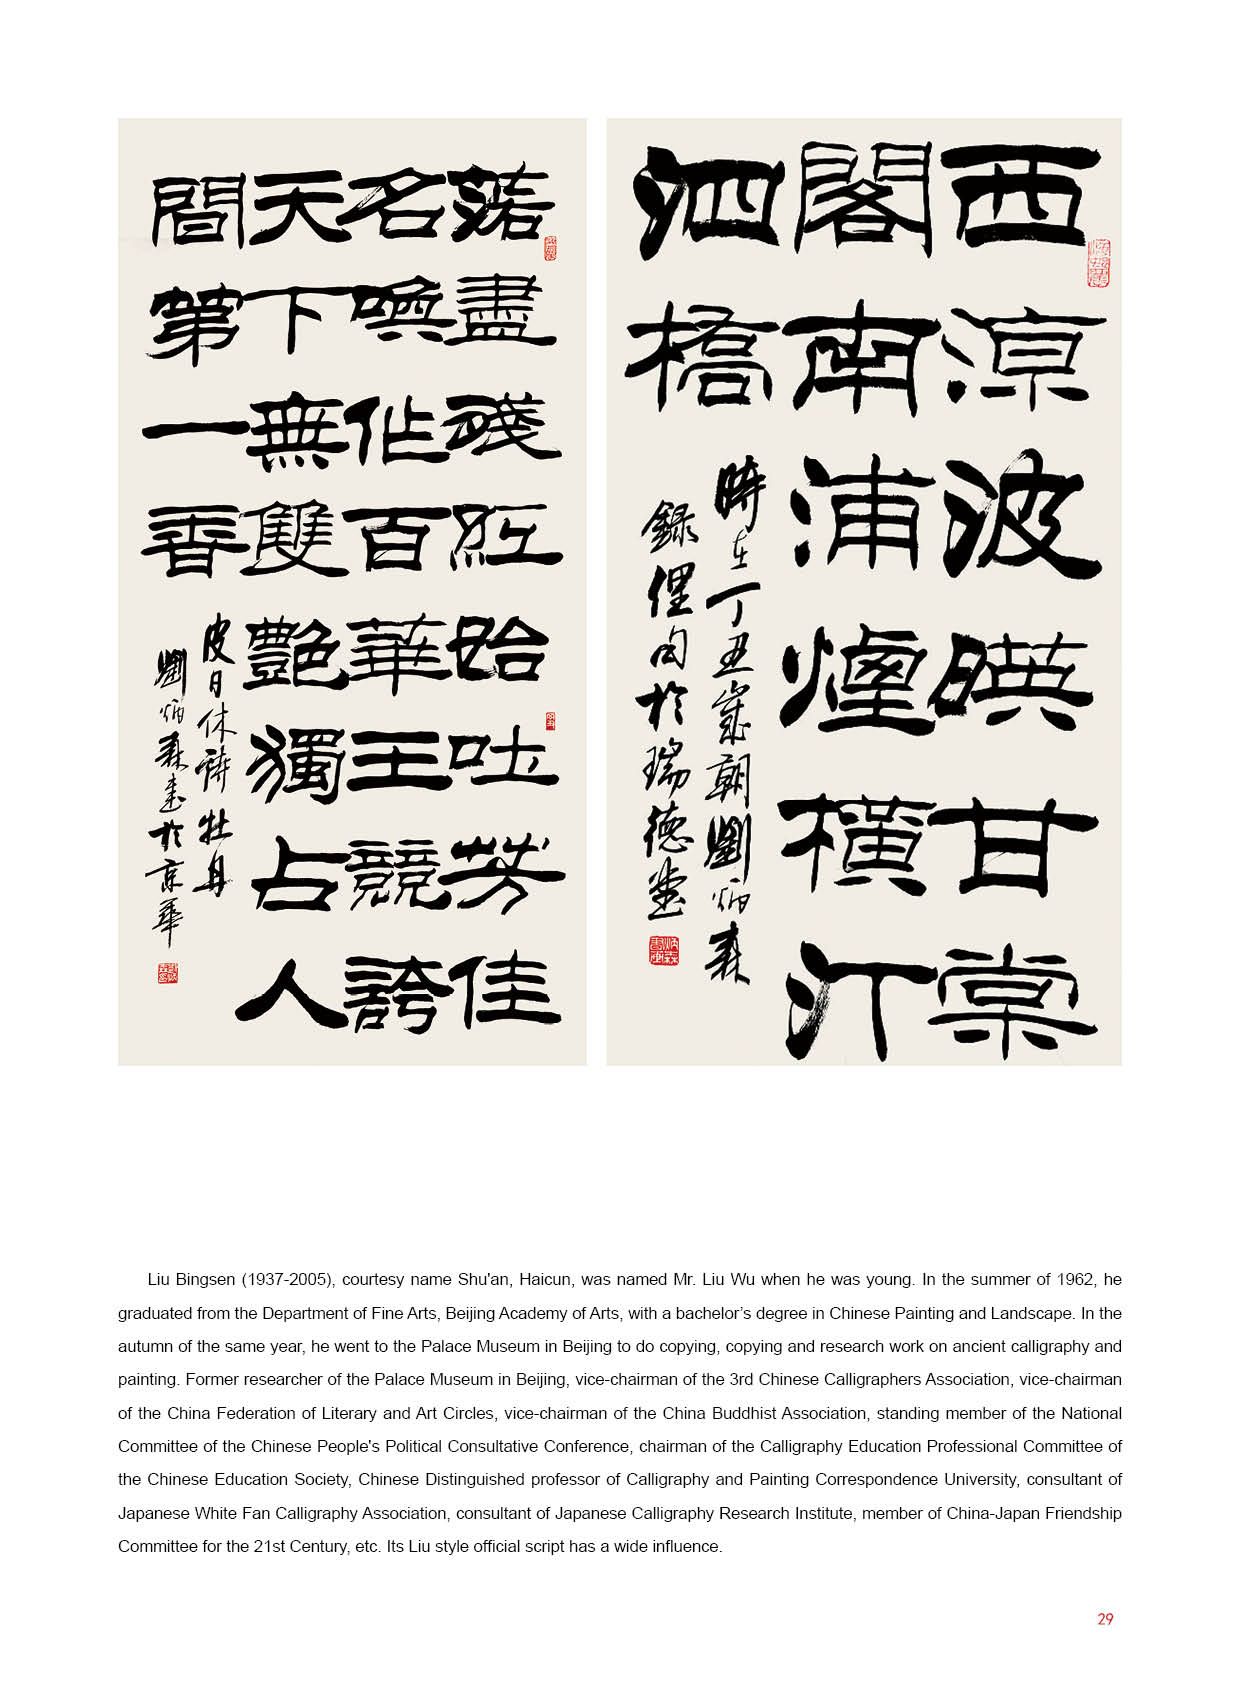 西涼波暎甘棠
閣南浦煙橫汀
泗橋
時在丁丑歲朝劉炳森
錄俚句於瑞德堂
落盡殘紅始吐芳佳
名喚作百華王競誇
天下無雙艷獨占人
間第一香
皮日休詩牡丹
劉炳森書於京華
Liu Bingsen (1937-2005), courtesy name Shu'an, Haicun, was named Mr. Liu Wu when he was young. In the summer of 1962, he
graduated from the Department of Fine Arts, Beijing Academy of Arts, with a bachelor’s degree in Chinese Painting and Landscape. In the
autumn of the same year, he went to the Palace Museum in Beijing to do copying, copying and research work on ancient calligraphy and
painting. Former researcher of the Palace Museum in Beijing, vice-chairman of the 3rd Chinese Calligraphers Association, vice-chairman
of the China Federation of Literary and Art Circles, vice-chairman of the China Buddhist Association, standing member of the National
Committee of the Chinese People's Political Consultative Conference, chairman of the Calligraphy Education Professional Committee of
the Chinese Education Society, Chinese Distinguished professor of Calligraphy and Painting Correspondence University, consultant of
Japanese White Fan Calligraphy Association, consultant of Japanese Calligraphy Research Institute, member of China-Japan Friendship
Committee for the 21st Century, etc. Its Liu style official script has a wide influence.
29